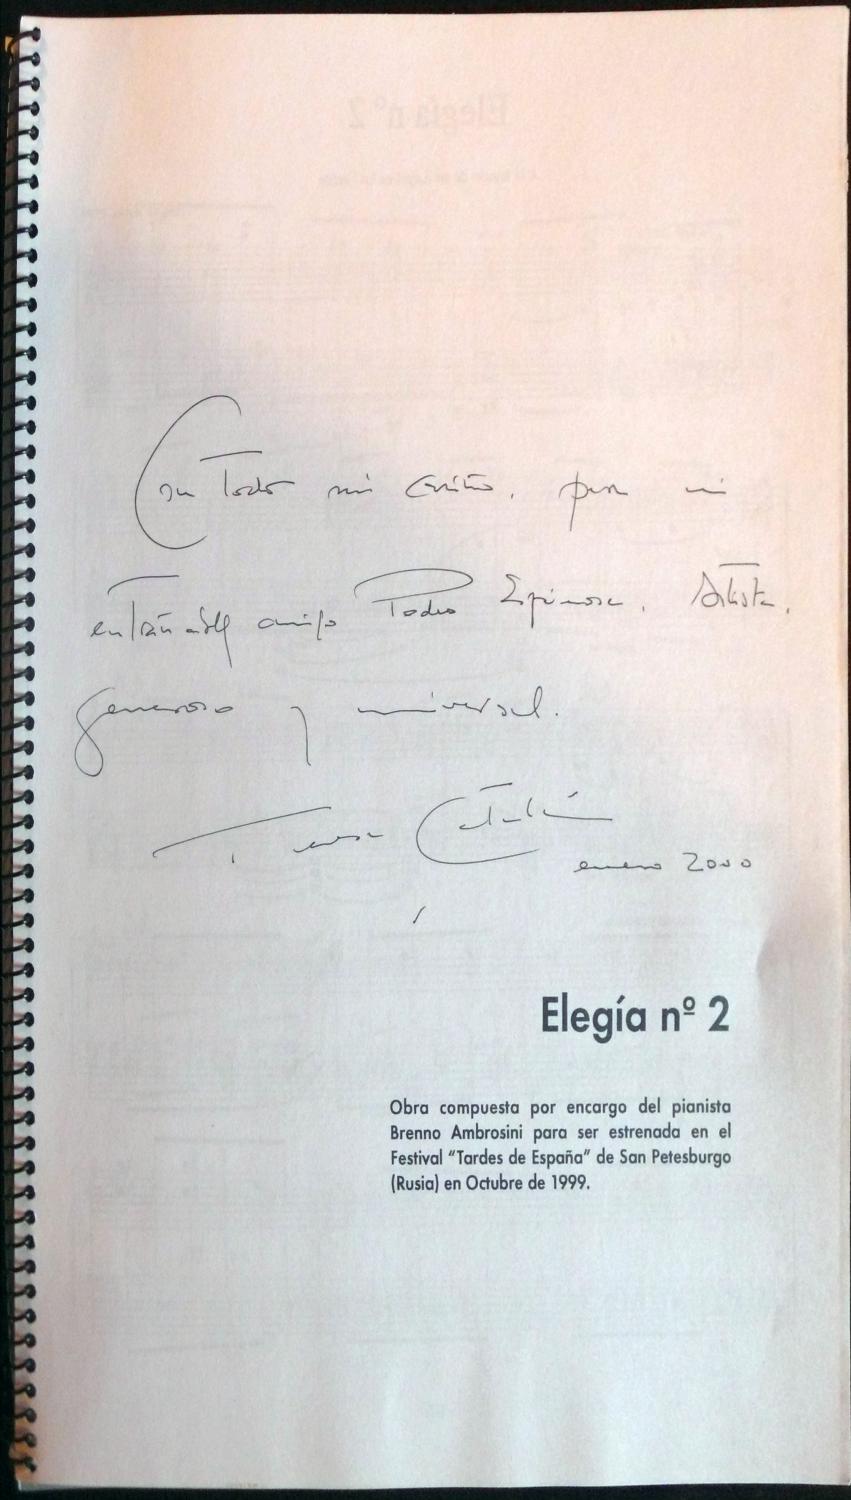 Con Todo mi cariño, para mi
entrañable amigo Pedro Espinosa. Artista,
generoso y universal.
Teresa Catalán
enero 2000
Elegía nº 2
Obra compuesta por encargo del pianista
Brenno Ambrosini para ser estrenada en el
Festival “Tardes de España” de San Petesburgo
(Rusia) en Octubre de 1999.